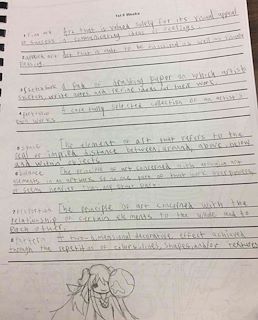 • Fine art Art that is valued solely for its visual appeal
or success in communicating ideas or feelings.
Art that is made to be functional as well as visually
pleasing.
• Sketchbook A pad of drawing paper on which artist
sketch, write notes and refine ideas for their work.
• Portfolio A carefully selected collection of an artist's
own works.
• Space The element of art that refers to the
real or implied distance between, around, above, below
and within objects.
• Balance The principle of art concerned with arranging
elements in an so no one part of that work overpowers
or seems heavier than any other part.
• Proportion The principle of art concerned with the
relationship of certain elements to the whole and to
each other.
• Pattern A two-dimensional decorative effect achieved
through the repetition of colors, lines, shapes, and/or textures